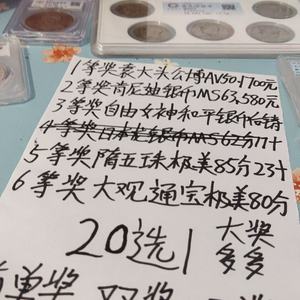 1等奖袁大头公博AV50,1700元
2等奖肯尼迪银币MS63,580元
3等奖自由女神和平银币后铸
4等奖日本龙银币MS62分11十
5等奖隋五珠极美85分23十
6等奖大观通宝极美80分
20选1
大奖
多多